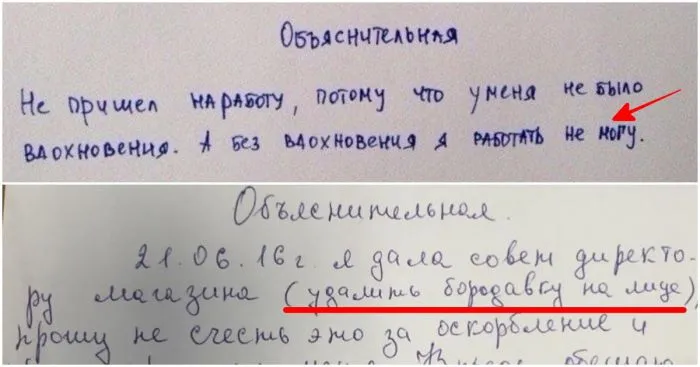 Объяснительная
Не пришел на работу, потому что у меня не было
вдохновения. А без вдохновения я работать не могу.
Объяснительная.
21.06.16г. я дала совет директо-
ру магазина (удалить бородавку на лице),
прошу не счесть это за оскорбление и